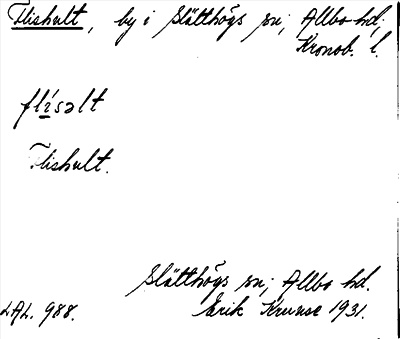 Flishult, by i Slätthögs sn; Allbo hd;
Kronob. l.
flísəlt
Flishult.
Slätthögs sn; Allbo hd.
LAL. 988. Erik Kruuse 1931.